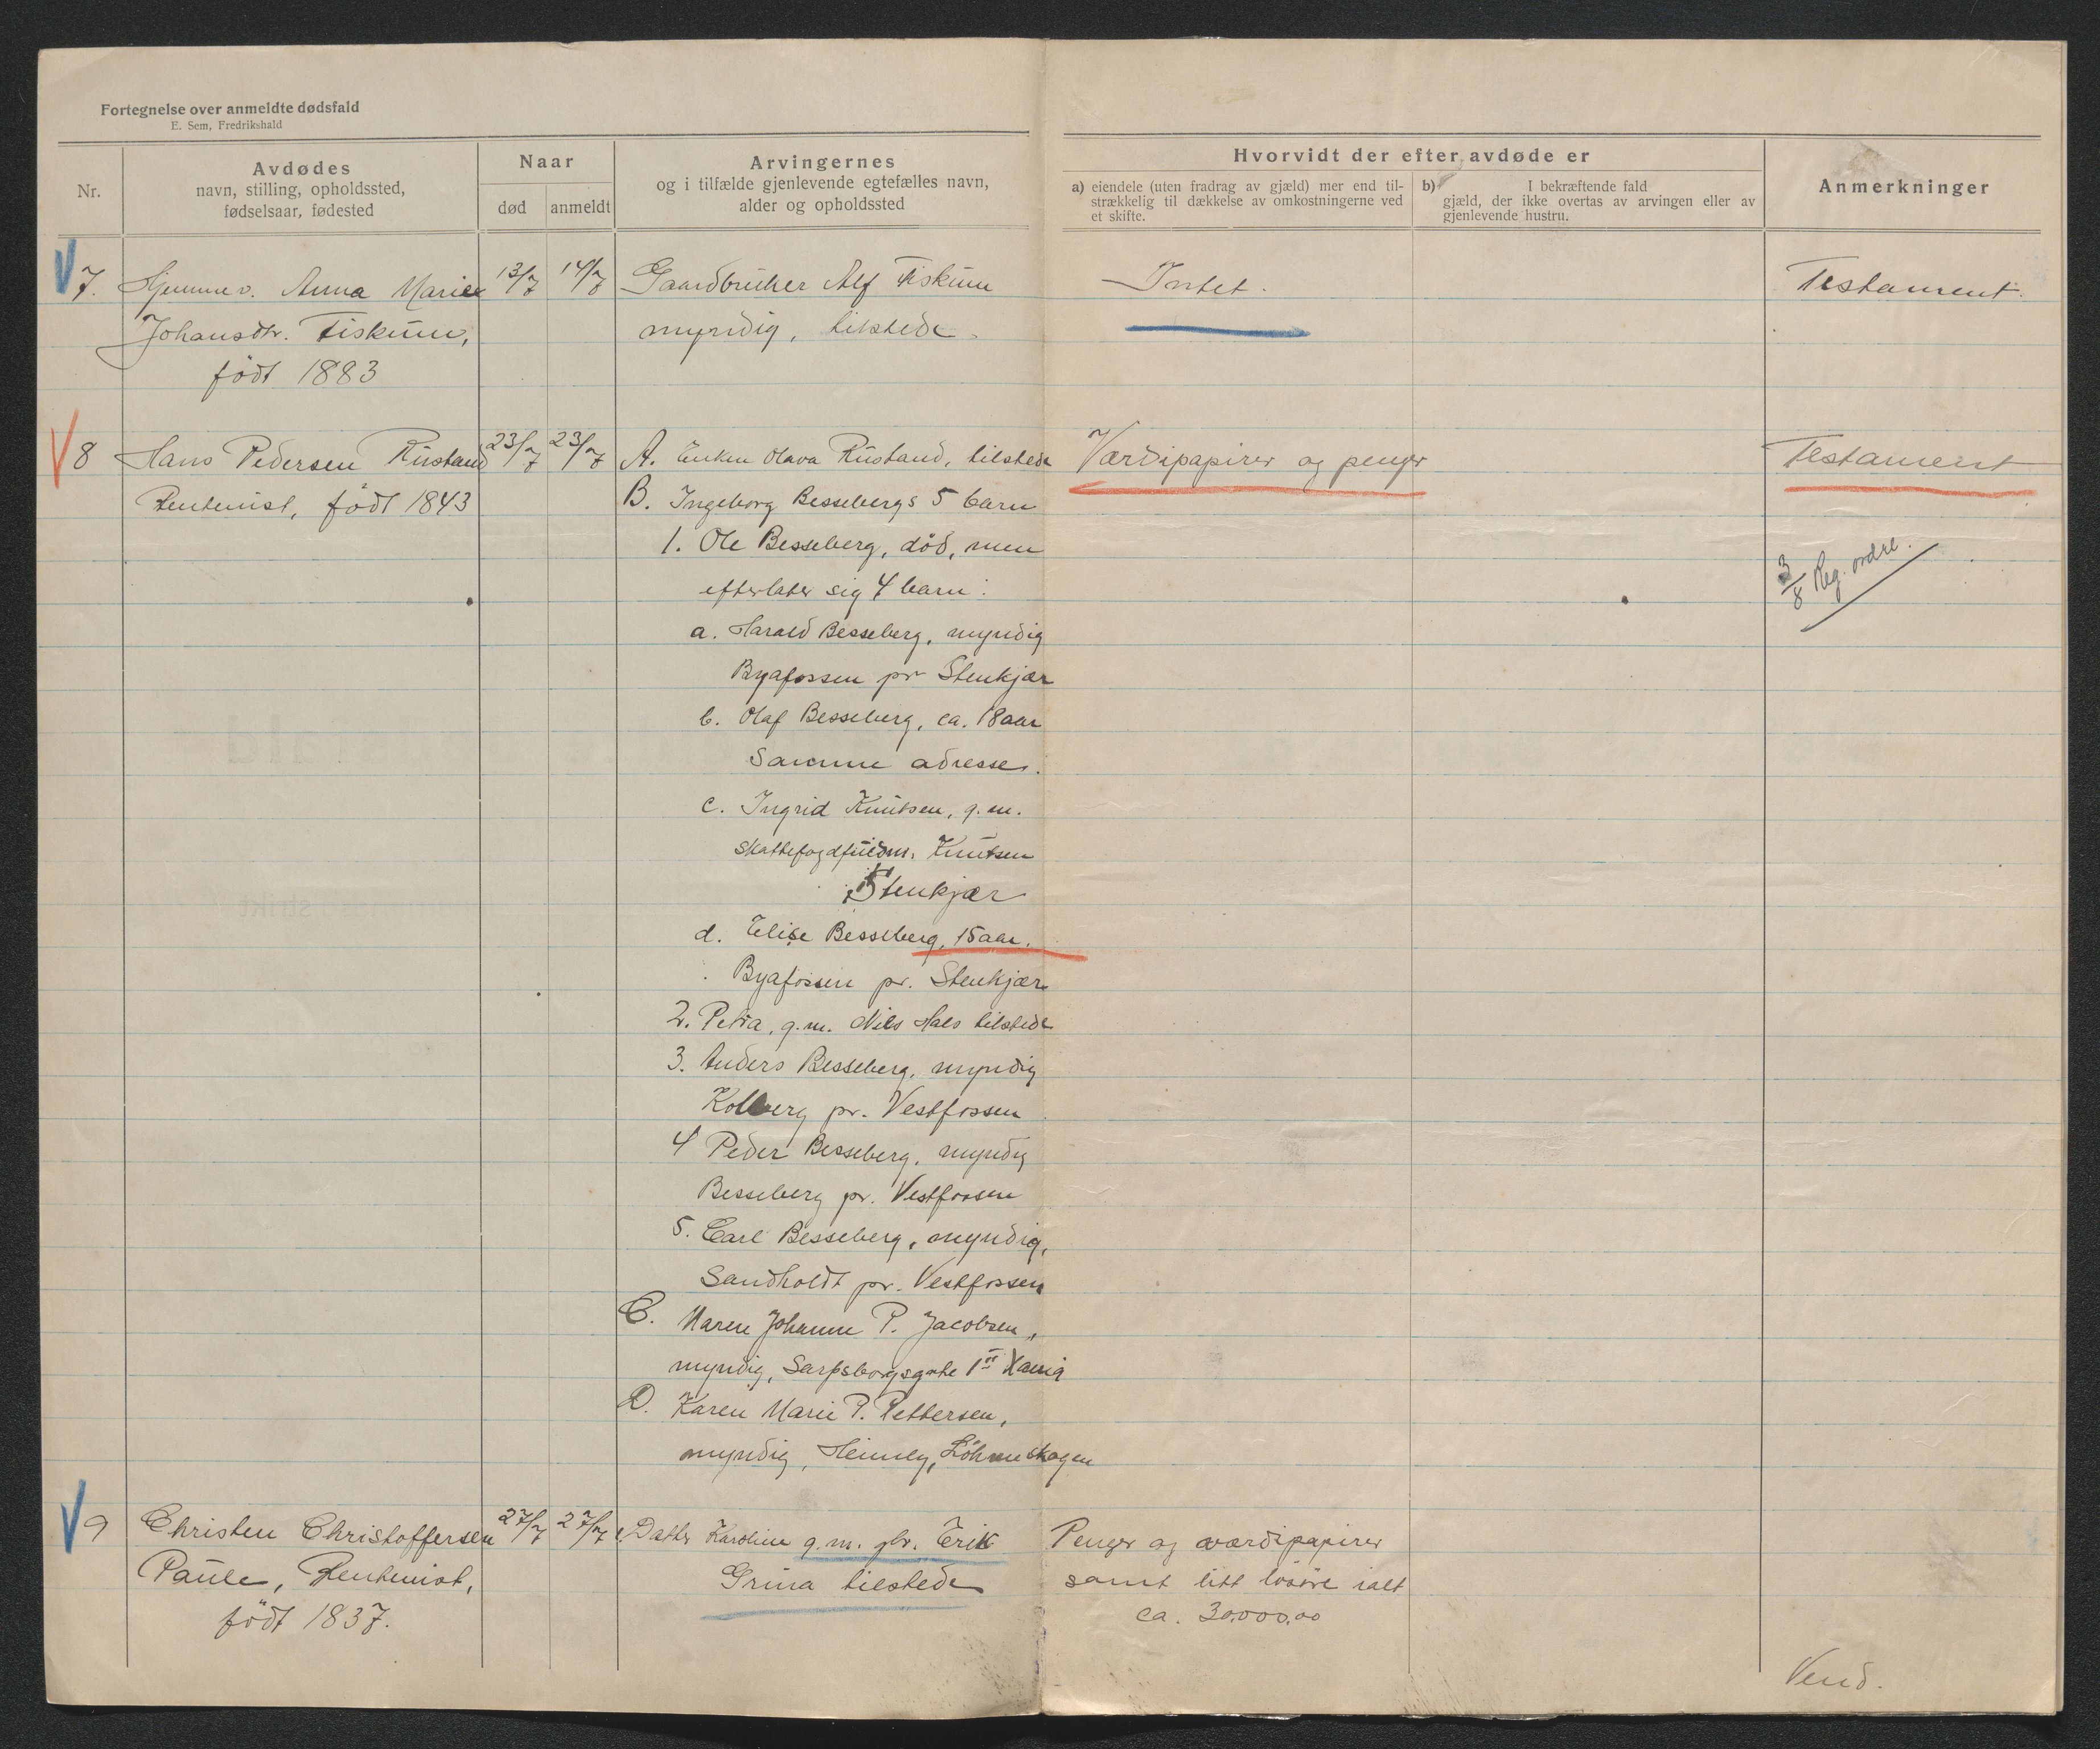 Fortegnelse over anmeldte dødsfald
E. Sem, Fredrikshald
Nr.
Avdødes
navn, stilling, opholdssted,
fødselsaar, fødested
Naar
død
anmeldt
Arvingernes
og i tilfælde gjenlevende egtefælles navn,
alder og opholdssted
Hvorvidt der efter avdøde er
a) eiendele (uten fradrag av gjæld) mer end til-
strækkelig til dækkelse av omkostningerne ved
et skifte.
b) I bekræftende fald
gjæld, der ikke overtas av arvingen eller av
gjenlevende hustru.
Anmerkninger
7. Hjemmev. Anna Marie 13/7 14/7 Gaardbruker Alf Fiskum Intet. Testament.
Johansdtr. Fiskum, myndig, tilstede.
født 1883
8 Hans Pedersen Rustand 23/7 23/7 A. Enken Olava Rustand, tilstede Værdipapirer og penger Testament
Rentenist, født 1843 B. Ingeborg Bessebergs 5 barn
1. Ole Besseberg, död, men
3/8 Reg. ordre.
efterlater sig 4 barn:
a. Harald Besseberg, myndig
Byafossen pr Stenkjær
b. Olaf Besseberg, ca. 18 aar
Samme adresse.
c. Ingrid Knutsen, g.m.
skattefogdfuldm. Knutsen
Stenkjær
d. Elise Besseberg, 15 aar.
Byafossen pr. Stenkjær
2. Petra, g.m. Nils Hals tilstede
3. Anders Besseberg, myndig
Kolberg pr. Vestfossen
4 Peder Besseberg, myndig
Besseberg pr. Vestfossen
5. Carl Besseberg, myndig,
Sandholdt pr. Vestfossen
C. Maren Johanne P. Jacobsen,
myndig, Sarpsborgsgate 1 II Xania
D. Karen Marie P. Pettersen,
myndig, Heimly, Löhrenskogen
9 Christen Christoffersen 27/7 27/7 Datter Karoline g.m. gbr. Erik Penger og værdipapirer
Paule, Rentenist, Gruna tilstede samt litt lösöre ialt
født 1837. ca. 30.000.00
Vend.